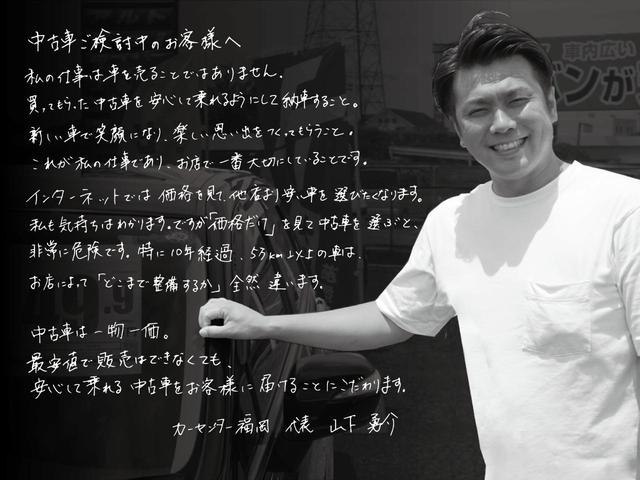 中古車ご検討中のお客様へ
私の仕事は車を売ることではありません。
買ってもらった中古車を安心して乗れるようにして納車すること。
新しい車で笑顔になり、楽しい思い出をつくってもらうこと。
これが私の仕事であり、お店で一番大切にしていることです。
インターネットでは価格を見て、他店より安い車を選びたくなります。
私も気持ちはわかります。ですが「価格だけ」を見て中古車を選ぶと、
非常に危険です。特に10年経過、5万km以上の車は、
お店によって「どこまで整備するか」全然違います。
中古車は一物一価。
最安値で販売はできなくても、
安心して乗れる中古車をお客様に届けることにこだわります。
カーセンター福岡 代表 山下 勇介
車内広い
バンが
9.9